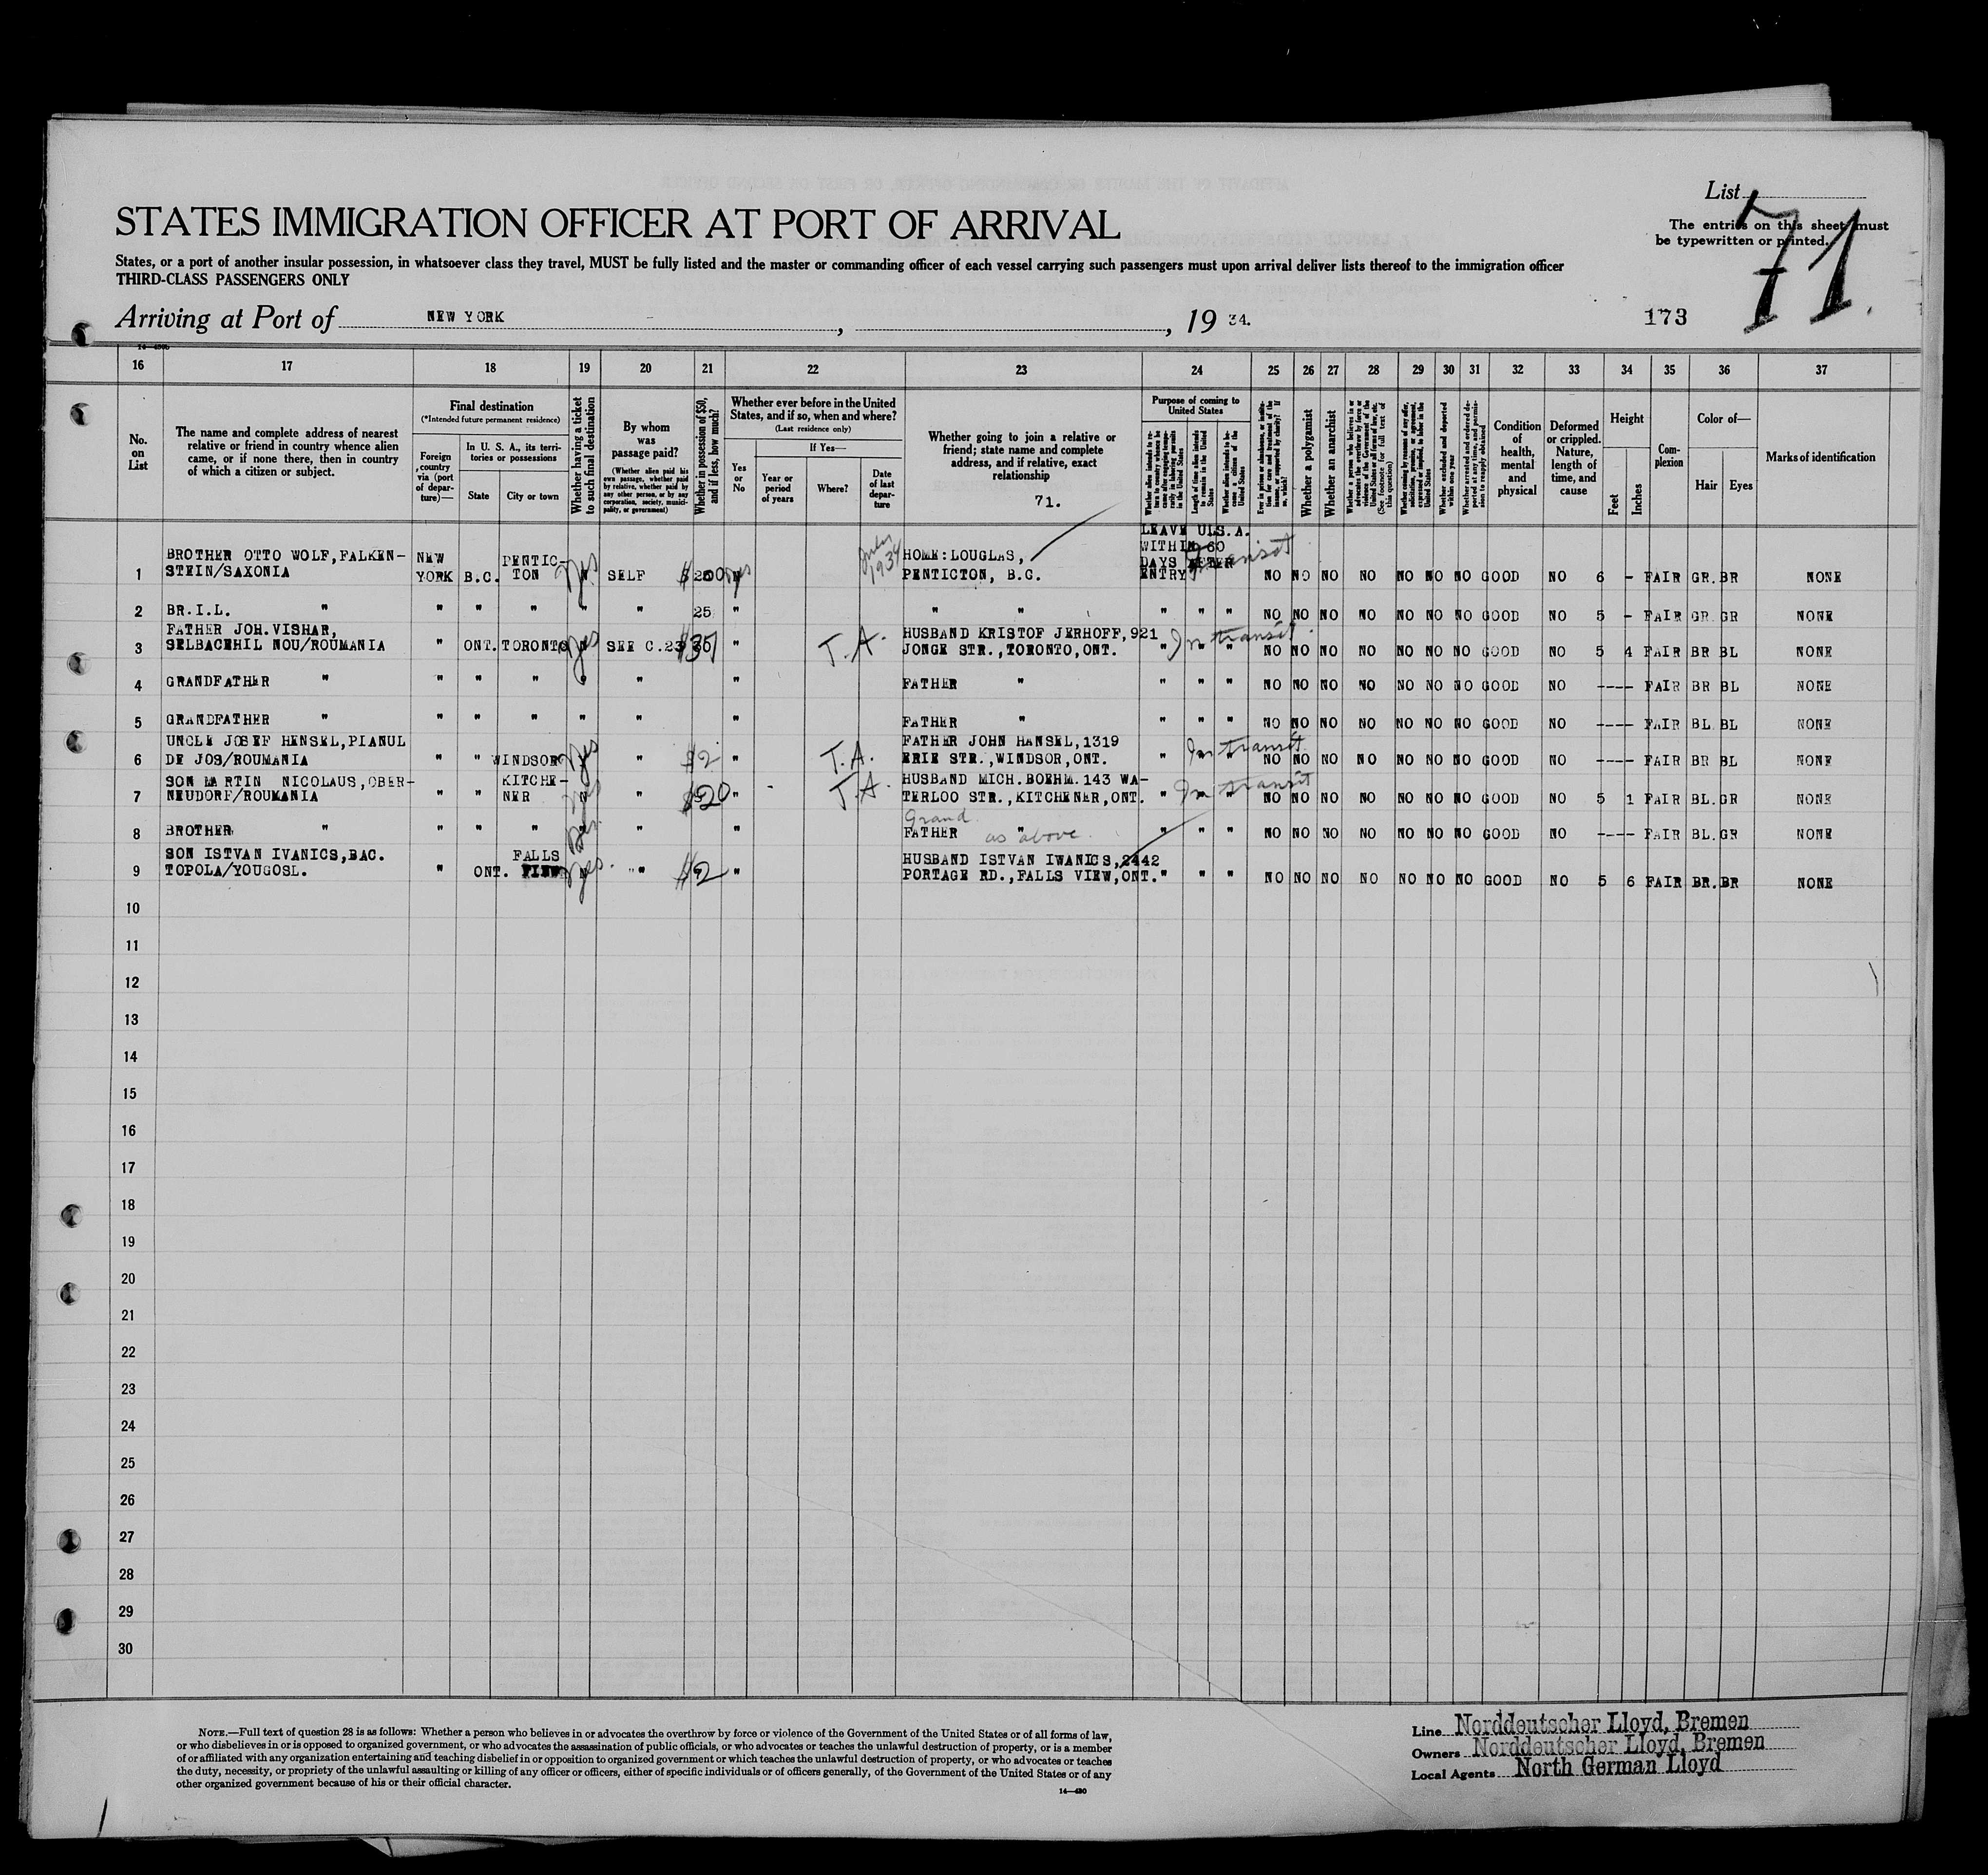 List 71.
STATES IMMIGRATION OFFICER AT PORT OF ARRIVAL
The entries on this sheet must
be typewritten or printed.
States, or a port of another insular possession, in whatsoever class they travel, MUST be fully listed and the master or commanding officer of each vessel carrying such passengers must upon arrival deliver lists thereof to the immigration officer
THIRD-CLASS PASSENGERS ONLY
Arriving at Port of NEW YORK, , 19 34.
173
16 17 18 19 20 21 22 23 24 25 26 27 28 29 30 31 32 33 34 35 36 37
No. on List
The name and complete address of nearest
relative or friend in country whence alien
came, or if none there, then in country
of which a citizen or subject.
Final destination
(*Intended future permanent residence)
Foreign country via (port of departure)—
In U. S. A., its territories or possessions
State
City or town
Whether having a ticket to such final destination
By whom was passage paid?
(Whether alien paid his own passage, whether paid by relative, whether paid by any other person, or by any corporation, society, municipality, or government)
Whether in possession of $50, and if less, how much?
Whether ever before in the United States, and if so, when and where?
(Last residence only)
Yes or No
If Yes—
Year or period of years
Where?
Date of last departure
Whether going to join a relative or
friend; state name and complete
address, and if relative, exact
relationship
71.
Purpose of coming to United States
Whether a polygamist
Whether an anarchist
Condition of health, mental and physical
Deformed or crippled. Nature, length of time, and cause
Height
Feet
Inches
Complexion
Color of—
Hair
Eyes
Marks of identification
LEAVE U.S.A.
WITHIN 60
DAYS AFTER
ENTRY
1 BROTHER OTTO WOLF, FALKEN-
STEIN/SAXONIA NEW YORK B.C. PENTIC-TON Yes SELF $200 Yes July 1934 HOME: LOUGLAS,
PENTICTON, B.C. Transit NO NO NO NO NO NO NO GOOD NO 6 - FAIR GR. BR NONE
2 BR.I.L. " " " " " " 25 " " " " " " NO NO NO NO NO NO NO GOOD NO 5 - FAIR GR GR NONE
3 FATHER JOH. VISHAR,
SELBACEHIL NOU/ROUMANIA " ONT. TORONTO Yes SEE C.23 $35 " T.A. HUSBAND KRISTOF JERHOFF, 921
JONGE STR., TORONTO, ONT. " In transit NO NO NO NO NO NO NO GOOD NO 5 4 FAIR BR BL NONE
4 GRANDFATHER " " " " " " " FATHER " " " " NO NO NO NO NO NO NO GOOD NO ---- FAIR BR BL NONE
5 GRANDFATHER " " " " " " " FATHER " " " " NO NO NO NO NO NO NO GOOD NO ---- FAIR BL. BL NONE
6 UNCLE JOSEF HENSEL, PIANUL
DE JOS/ROUMANIA " " WINDSOR Yes " $2 " T.A. FATHER JOHN HANSEL, 1319
ERIE STR., WINDSOR, ONT. " In transit NO NO NO NO NO NO NO GOOD NO ---- FAIR BR BL NONE
7 SON MARTIN NICOLAUS, OBER-
NEUDORF/ROUMANIA " " KITCHE-NER Yes " $20 " T.A. HUSBAND MICH. BOEHM. 143 WA-
TERLOO STR., KITCHENER, ONT. " In transit NO NO NO NO NO NO NO GOOD NO 5 1 FAIR BL. GR NONE
8 BROTHER " " " " " " " Grand
FATHER " as above. " " " NO NO NO NO NO NO NO GOOD NO ---- FAIR BL. GR NONE
9 SON ISTVAN IVANICS, BAC.
TOPOLA/YOUGOSL. " ONT. FALLS VIEW Yes. " $2 " HUSBAND ISTVAN IWANICS, 2442
PORTAGE RD., FALLS VIEW, ONT. " " " NO NO NO NO NO NO NO GOOD NO 5 6 FAIR BR. BR NONE
10
11
12
13
14
15
16
17
18
19
20
21
22
23
24
25
26
27
28
29
30
NOTE.—Full text of question 28 is as follows: Whether a person who believes in or advocates the overthrow by force or violence of the Government of the United States or of all forms of law,
or who disbelieves in or is opposed to organized government, or who advocates the assassination of public officials, or who advocates or teaches the unlawful destruction of property, or is a member
of or affiliated with any organization entertaining and teaching disbelief in or opposition to organized government or which teaches the unlawful destruction of property, or who advocates or teaches
the duty, necessity, or propriety of the unlawful assaulting or killing of any officer or officers, either of specific individuals or of officers generally, of the Government of the United States or of any
other organized government because of his or their official character.
14—430
Line Norddeutscher Lloyd, Bremen
Owners Norddeutscher Lloyd, Bremen
Local Agents North German Lloyd